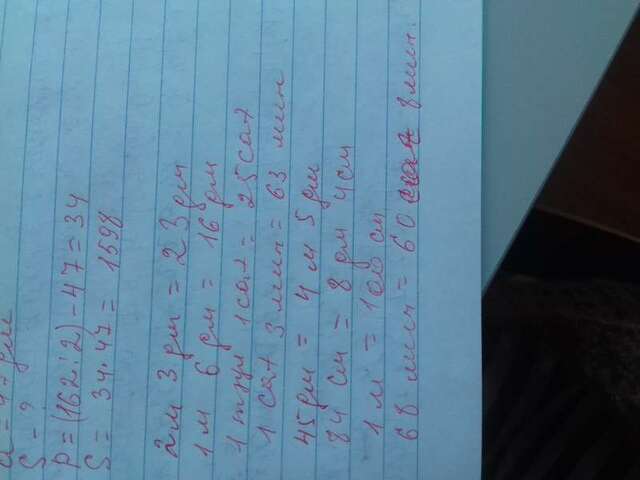 a = 47 дм
S - ?
P = (162:2) - 47 = 34
S = 34·47 = 1598
2м 3 дм = 23 дм
1 м 6 дм = 16 дм
1 түүл 1 сат = 25 сат
1 сат 3 мин = 63 мин
45 дм = 4 м 5 дм
84 см = 8 дм 4 см
1 м = 100 см
68 мин = 60 8 мин.